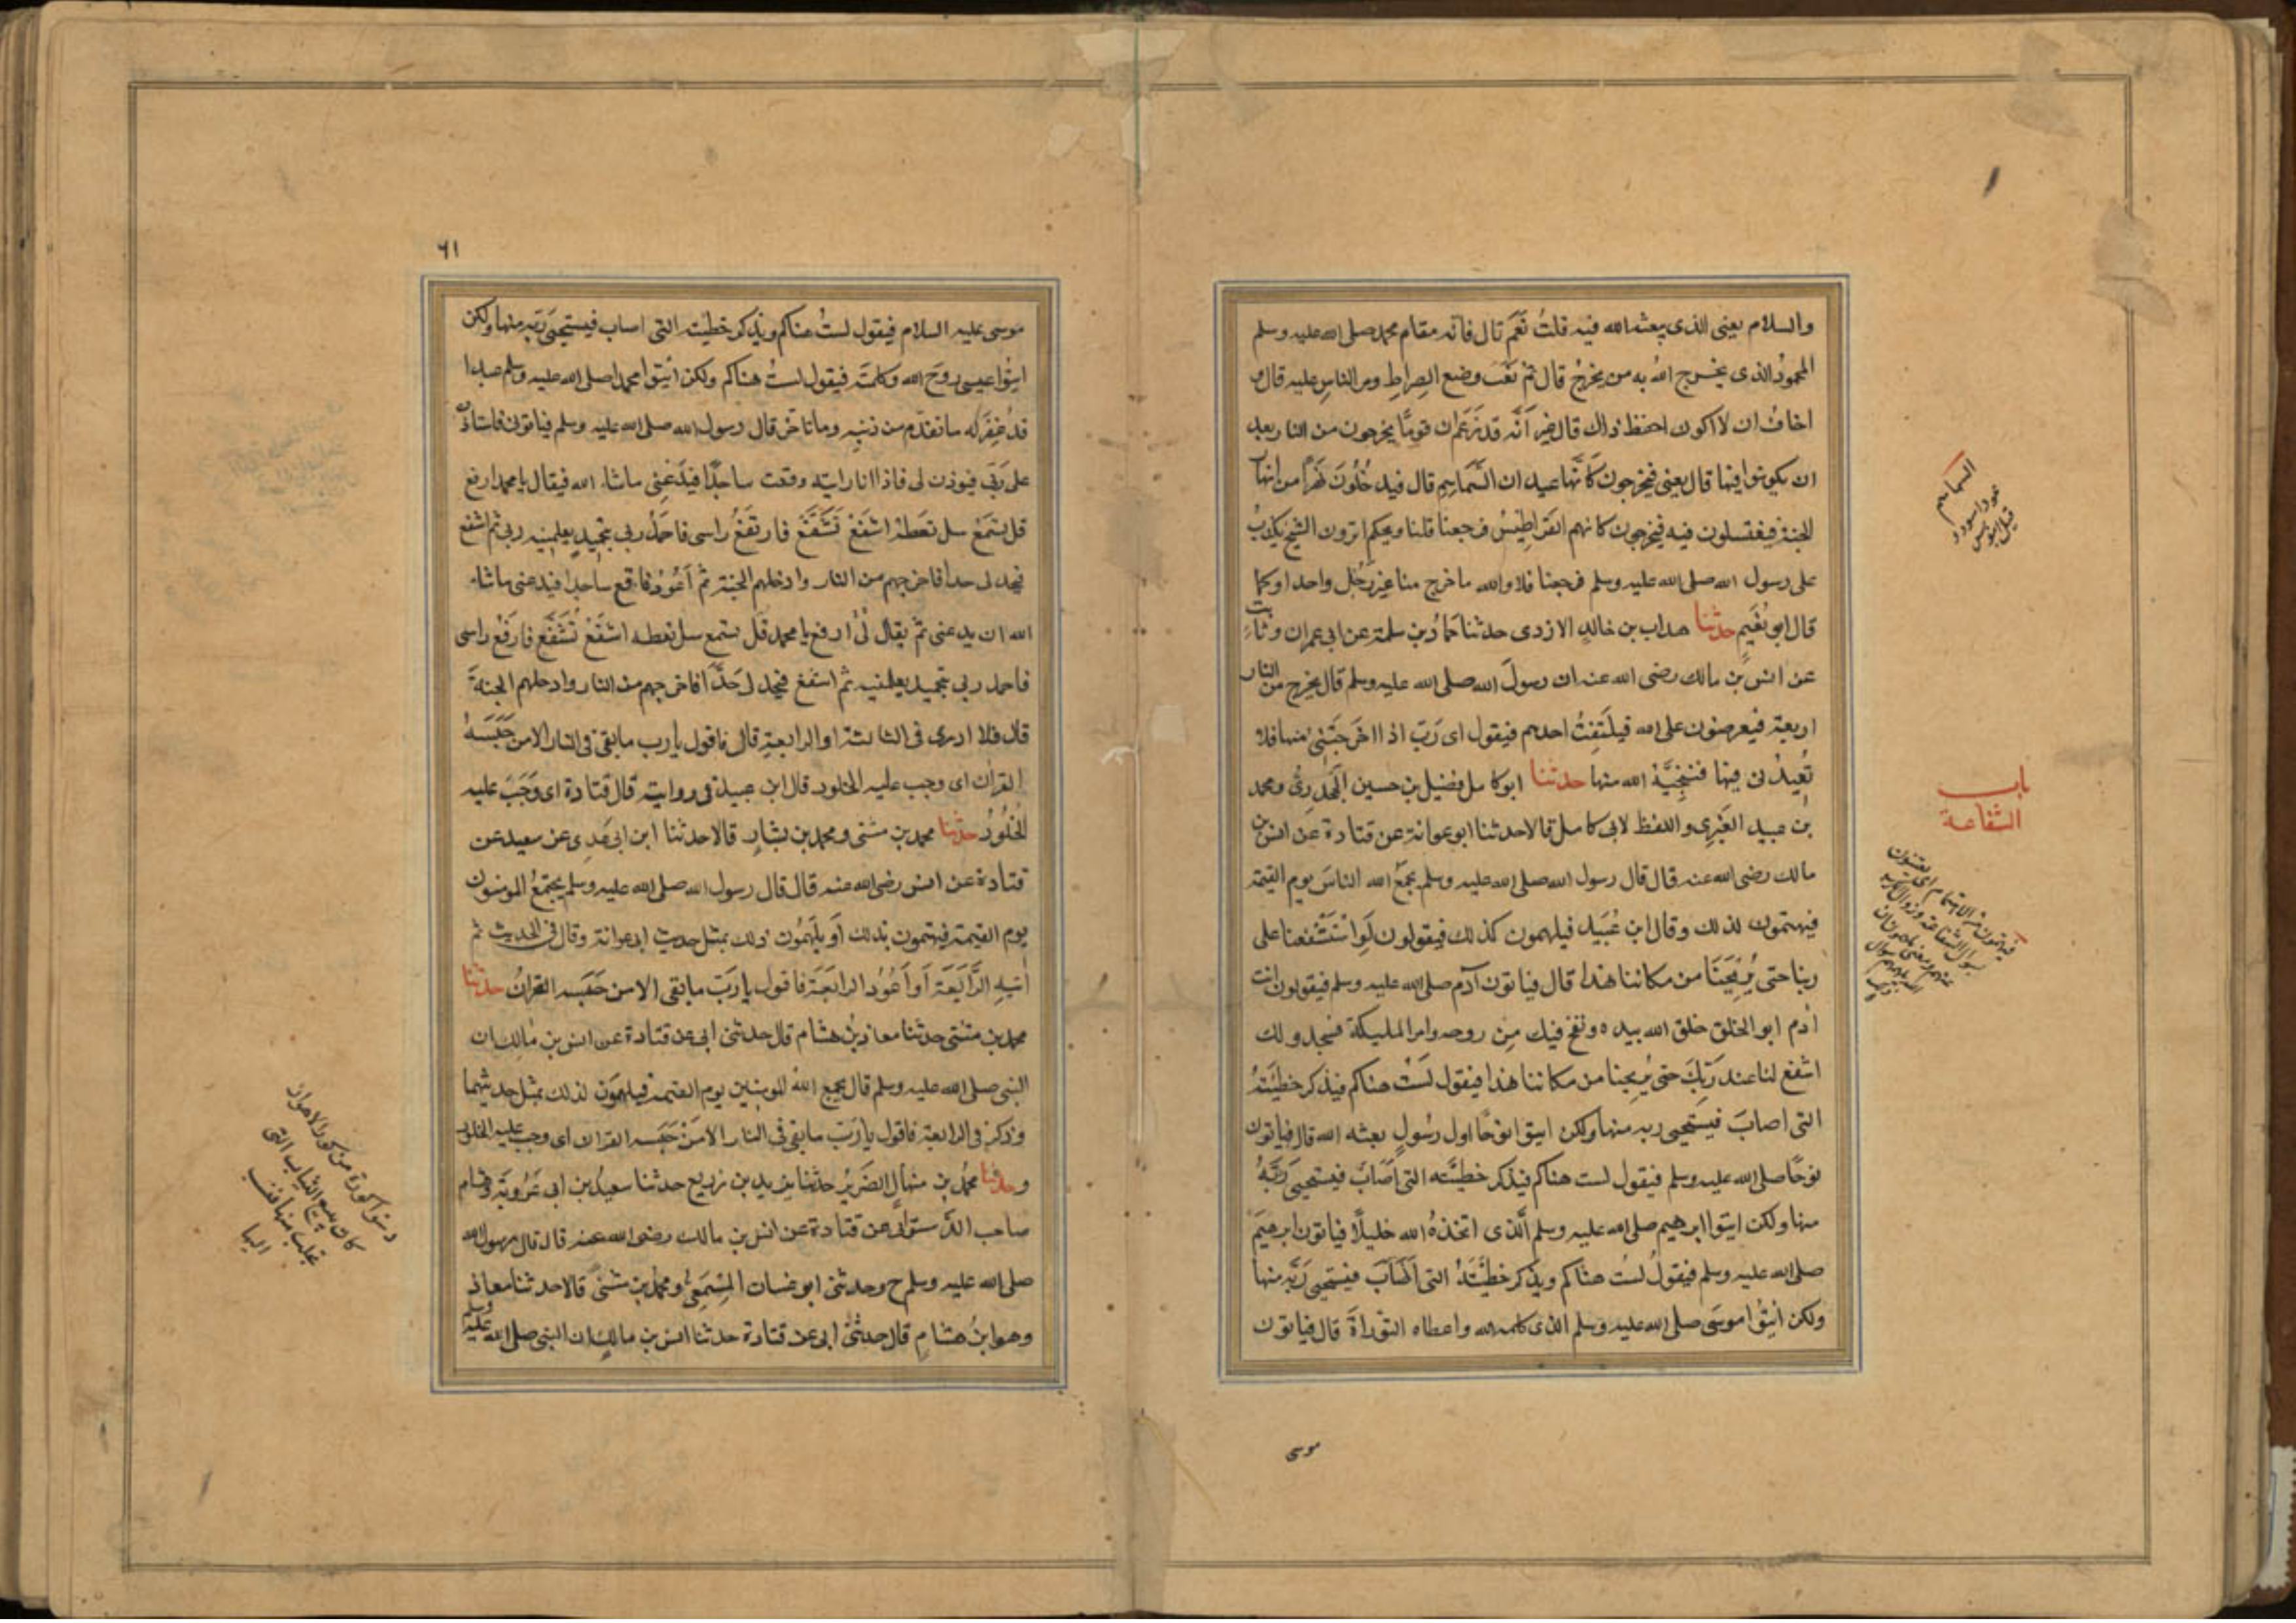 والسلام يعنى الذى يبعثه الله فيه قلتُ نَعَم قال فانه مقام محمد صلى الله عليه وسلم
المحمودُ الذى يخرج اللهُ به من يخرجُ قال ثم نَعَتَ وضع الصراطِ ومر الناسِ عليه قال و
اخافُ ان لا اكون احفظ ذاك قال غير اَنّه قد زعَم ان قومًا يخرجون من النار بعد
ان يكونوا فيها قال يعنى فيخرجون كَانّها عيدان السَّمَاسِمِ قال فيدخُلُونَ نهرًا من انهار
الجنة فيغتسلون فيه فيخرجون كانهم القراطِيسُ فرجعنا قلنا ويحكم اترون الشيخ يكذِبُ
على رسول الله صلى الله عليه وسلم فرجعنا فلا والله ما خرج منا غير رَجُلٍ واحد او كما
قال ابو نُعَيمٍ حدثنا هداب بن خالدٍ الازدى حدثنا حمادُ بن سلمة عن ابى عمران وثابتٍ
عن انس بن مالك رضى الله عنه ان رسولَ الله صلى الله عليه وسلم قال يخرج من النار
اربعة فيعرضون على الله فيلتَفِتُ احدهم فيقول اى رَبّ اذ اخرجتَنى منها فلا
تُعِيدُنى فيها فينجِيَهُ الله منها حدثنا ابو كامل فضيل بن حسين الجحدرِىُّ ومحمد
بن عبيد الغُبَرِى واللفظ لابى كامل قالا حدثنا ابو عوانة عن قتادة عن انس بن
مالك رضى الله عنه قال قال رسول الله صلى الله عليه وسلم يجمعُ الله الناسَ يوم القيمة
فيهتمون لذلك وقال ابن عُبَيد فيلهمون كذلك فيقولون لَوِ اسْتَشْفعنا على
ربنا حتى يُرِيحَنَا من مكاننا هذا قال فياتون آدم صلى الله عليه وسلم فيقولون انت
اٰدم ابو الخلق خلق الله بيده ونفخ فيك مِن روحه وامر المليكة فسجدوا لك
اشفع لنا عند رَبِّكَ حتى يُريحنا من مكاننا هذا فيقول لَسْتُ هناكم فيذكر خطيئَتهُ
التى اصابَ فيستحيى ربه منها ولكن ايتوا نوحًا اول رسُولٍ بعثه الله قال فياتون
نوحًا صلى الله عليه وسلم فيقول لست هناكم فيذكر خطيئَته التى اَصَابَ فيستحيى رَبَّهُ
منها ولكن ايتوا ابرهيم صلى الله عليه وسلم الَّذى اتخذهُ الله خليلًا فياتون ابرهيمَ
صلى الله عليه وسلم فيقولُ لستُ هناكم ويذكر خطيئَتَهُ التى اَصَابَ فيستحيى رَبَّه منها
ولكن اٰيتُوا موسَى صلى الله عليه وسلم الذى كلمه الله واعطاه التوراةَ قال فياتون
موسى
السماسم
باب
الشفاعة
٦١
موسى عليه السلام فيقول لستُ هناكم ويذكر خطيئته التى اصاب فيستحيى رَبّه منها ولكن
ايتُوا عيسى روحَ الله وكلمتَه فيقول لستُ هناكم ولكن ائتوا محمدا صلى الله عليه وسلم عبدا
قد غُفِرَ له ما تقدم من ذنبه وما تاخر قال رسول الله صلى الله عليه وسلم فياتون فاستاذن
على رَبّى فيوذن لى فاذا انا رايته وقعت ساجدًا فيدَعُنِى ماشاء الله فيقال يا محمد ارفع
قل يُسْمَعْ سل تعطَهْ اشفَعْ تُشَفَّعْ فارفَعُ راسى فاحمَدُ ربى بتحمِيدٍ يعلمنيه ربى ثم اشفع
فيحد لى حدا فاخرجهم من النار وادخلهم الجنة ثم اَعُودُ فاقع ساجدا فيدعنى ماشاء
الله ان يدعنى ثم يقال لى ارفع يا محمد قل يسمع سل تعطه اشفَعْ تُشَفَّع فارفَعُ راسى
فاحمد ربى بتحميد يعلمنيه ثم اشفع فيحد لى حَدًّا فاخرجهم من النار وادخلهم الجنةَ
قال فلا ادرى فى الثالثة او الرابعةِ قال فاقول يارب ما بقى فى النار الا من حَبَسَهُ
القراٰن اى وجب عليه الخلود قال ابن عبيد فى روايته قال قتادة اى وَجَبَ عليه
الخُلُودُ حدثنا محمد بن مثنى ومحمد بن بشارٍ قالا حدثنا ابن ابى عَدِى عن سعيد عن
قتادة عن انس رضى الله عنه قال قال رسول الله صلى الله عليه وسلم يجتمعُ المومنون
يوم القيمة فيهتمون بذلك اَو يلهَمُون ذلك بمثل حديث ابى عوانة وقال فى الحديث ثم
اٰتيه الرَّابَعَة اَو اَعُوُد الرابعَة فاقول يا رَبّ ما بقى الا من حَبَسه القرانُ حدثنا
محمد بن مثنى حدثنا معاذ بنُ هشام قال حدثنى ابى عن قتادة عن انس بن مالك ان
النبى صلى الله عليه وسلم قال يجمع اللهُ المومنين يوم القيمة فيلهمون لذلك بمثل حديثهما
وذكر فى الرابعة فاقول يا رَبّ ما بقى فى النار الا مَنْ حَبَسه القران اى وجب عليه الخلود
وحدثنا محمدُ بن منهالٍ الضريرُ حدثنا يزيد بن زريع حدثنا سعيدُ بن ابى عَرُوبَة وهشام
صاحب الدَّستوائى عن قتادة عن انس بن مالك رضى الله عنه قال قال رسول الله
صلى الله عليه وسلم ح وحدثنى ابو غسان المِسْمَعِى ومحمد بن مثنى قالا حدثنا معاذ
وهو ابنُ هشامٍ قال حدثنى ابى عن قتادة حدثنا انس بن مالك ان النبى صلى الله عليه وسلم